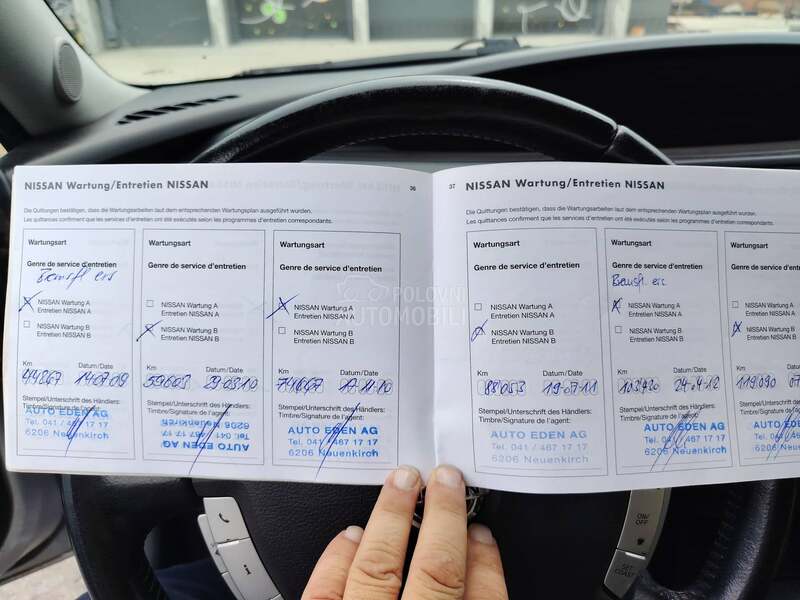 NISSAN Wartung/Entretien NISSAN
36
Die Quittungen bestätigen, dass die Wartungsarbeiten laut dem entsprechenden Wartungsplan ausgeführt wurden.
Les quittances confirment que les services d'entretien ont été exécutés selon les programmes d'entretien correspondants.
Wartungsart
Genre de service d'entretien
NISSAN Wartung A
Entretien NISSAN A
NISSAN Wartung B
Entretien NISSAN B
Km
Datum/Date
44867
14.07.09
Stempel/Unterschrift des Händlers:
Timbre/Signature de l'agent:
AUTO EDEN AG
Tel. 041 / 467 17 17
6206 Neuenkirch
Wartungsart
Genre de service d'entretien
NISSAN Wartung A
Entretien NISSAN A
NISSAN Wartung B
Entretien NISSAN B
Km
Datum/Date
59603
29.03.10
Stempel/Unterschrift des Händlers:
Timbre/Signature de l'agent:
AUTO EDEN AG
Tel. 041 / 467 17 17
6206 Neuenkirch
Wartungsart
Genre de service d'entretien
NISSAN Wartung A
Entretien NISSAN A
NISSAN Wartung B
Entretien NISSAN B
Km
Datum/Date
17.11.10
Stempel/Unterschrift des Händlers:
Timbre/Signature de l'agent:
AUTO EDEN AG
Tel. 041 / 467 17 17
6206 Neuenkirch
37
NISSAN Wartung/Entretien NISSAN
Die Quittungen bestätigen, dass die Wartungsarbeiten laut dem entsprechenden Wartungsplan ausgeführt wurden.
Les quittances confirment que les services d'entretien ont été exécutés selon les programmes d'entretien correspondants.
Wartungsart
Genre de service d'entretien
NISSAN Wartung A
Entretien NISSAN A
NISSAN Wartung B
Entretien NISSAN B
Km
Datum/Date
88053
19.07.11
Stempel/Unterschrift des Händlers:
Timbre/Signature de l'agent:
AUTO EDEN AG
Tel. 041 / 467 17 17
6206 Neuenkirch
Wartungsart
Genre de service d'entretien
NISSAN Wartung A
Entretien NISSAN A
NISSAN Wartung B
Entretien NISSAN B
Km
Datum/Date
24.04.12
Stempel/Unterschrift des Händlers:
Timbre/Signature de l'agent:
AUTO EDEN AG
Tel. 041 / 467 17 17
6206 Neuenkirch
Wartungsart
Genre de service d'en
NISSAN Wartung
Entretien NISSAN
NISSAN Wartung
Entretien NISSAN
Km
119090
07
Stempel/Unterschrift
Timbre/Signature de
AUTO ED
Tel. 041 /
6206 Ne
POLOVNI
AUTOMOBILI
ON/
OFF
SET
COAST